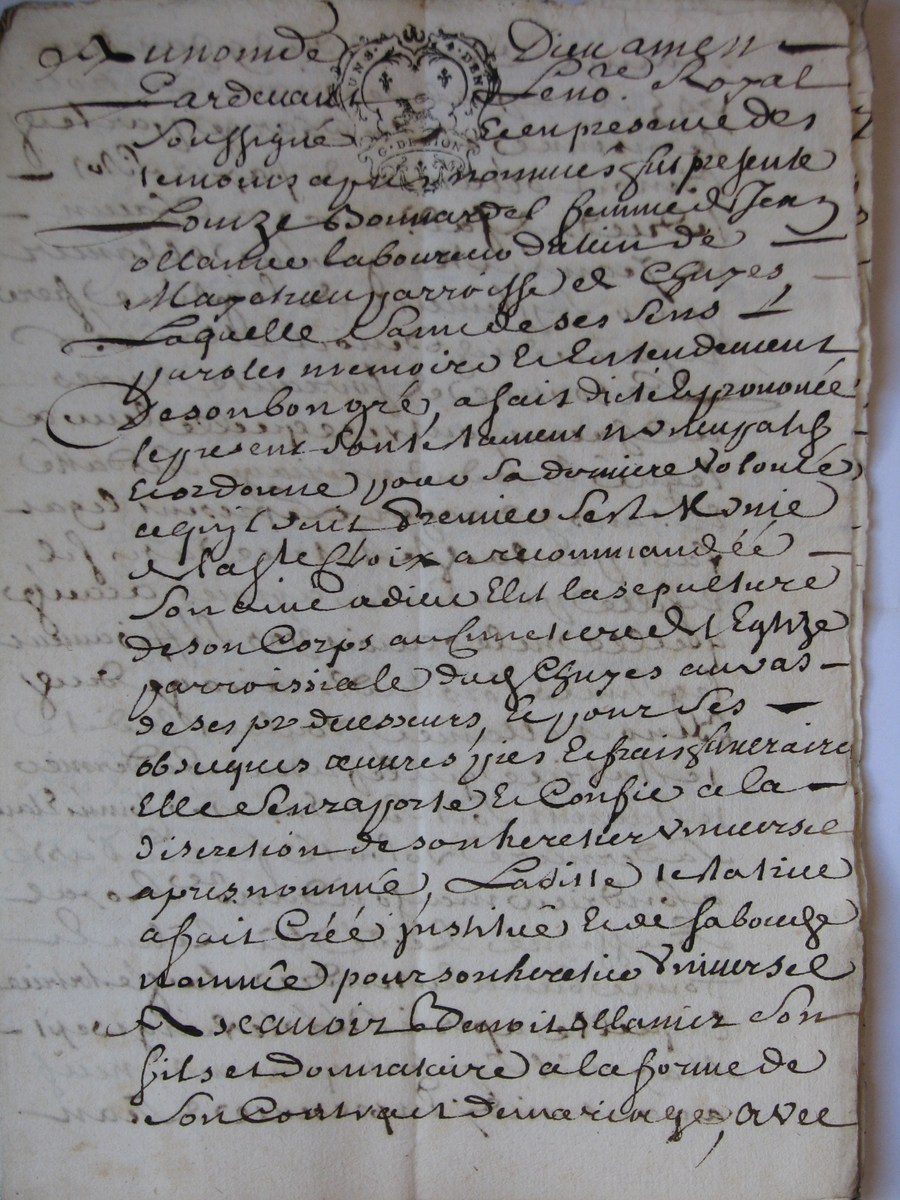 Au nom de Dieu amen
Pardevant Le no.re Royal
soussigné Et en presence des
temoins apres nommés fus presente
Louize Bonnardel femme de Jean
ollanier laboureur du lieu de
parroisse de Chuzes
Laquelle saine de ses sens
paroles memoire Et Entendement
De son bon gré, a fait dicté Et prononcée
le present son testament noncupatif
Et ordonne pour sa derniere volonté
ce quil suit Premier sest Munie
de la ste Croix a recommandée
son ame a dieu Elit la sepulture
de son Corps au Cimetiere de l Eglize
parroissiale dud Chuzes au vas
de ses predecesseurs, Et pour ses
obseques œuvres pies Et frais funeraires
Elle sen raporte Et Confie a la
discretion de son heretier universel
apres nommé, Laditte testatrice
a fait Créé institué Et de sa bouche
nommée pour son heretier universel
A scavoir Benoit ollanier son
fils et donnataire a la forme de
son Contract de mariage, avec